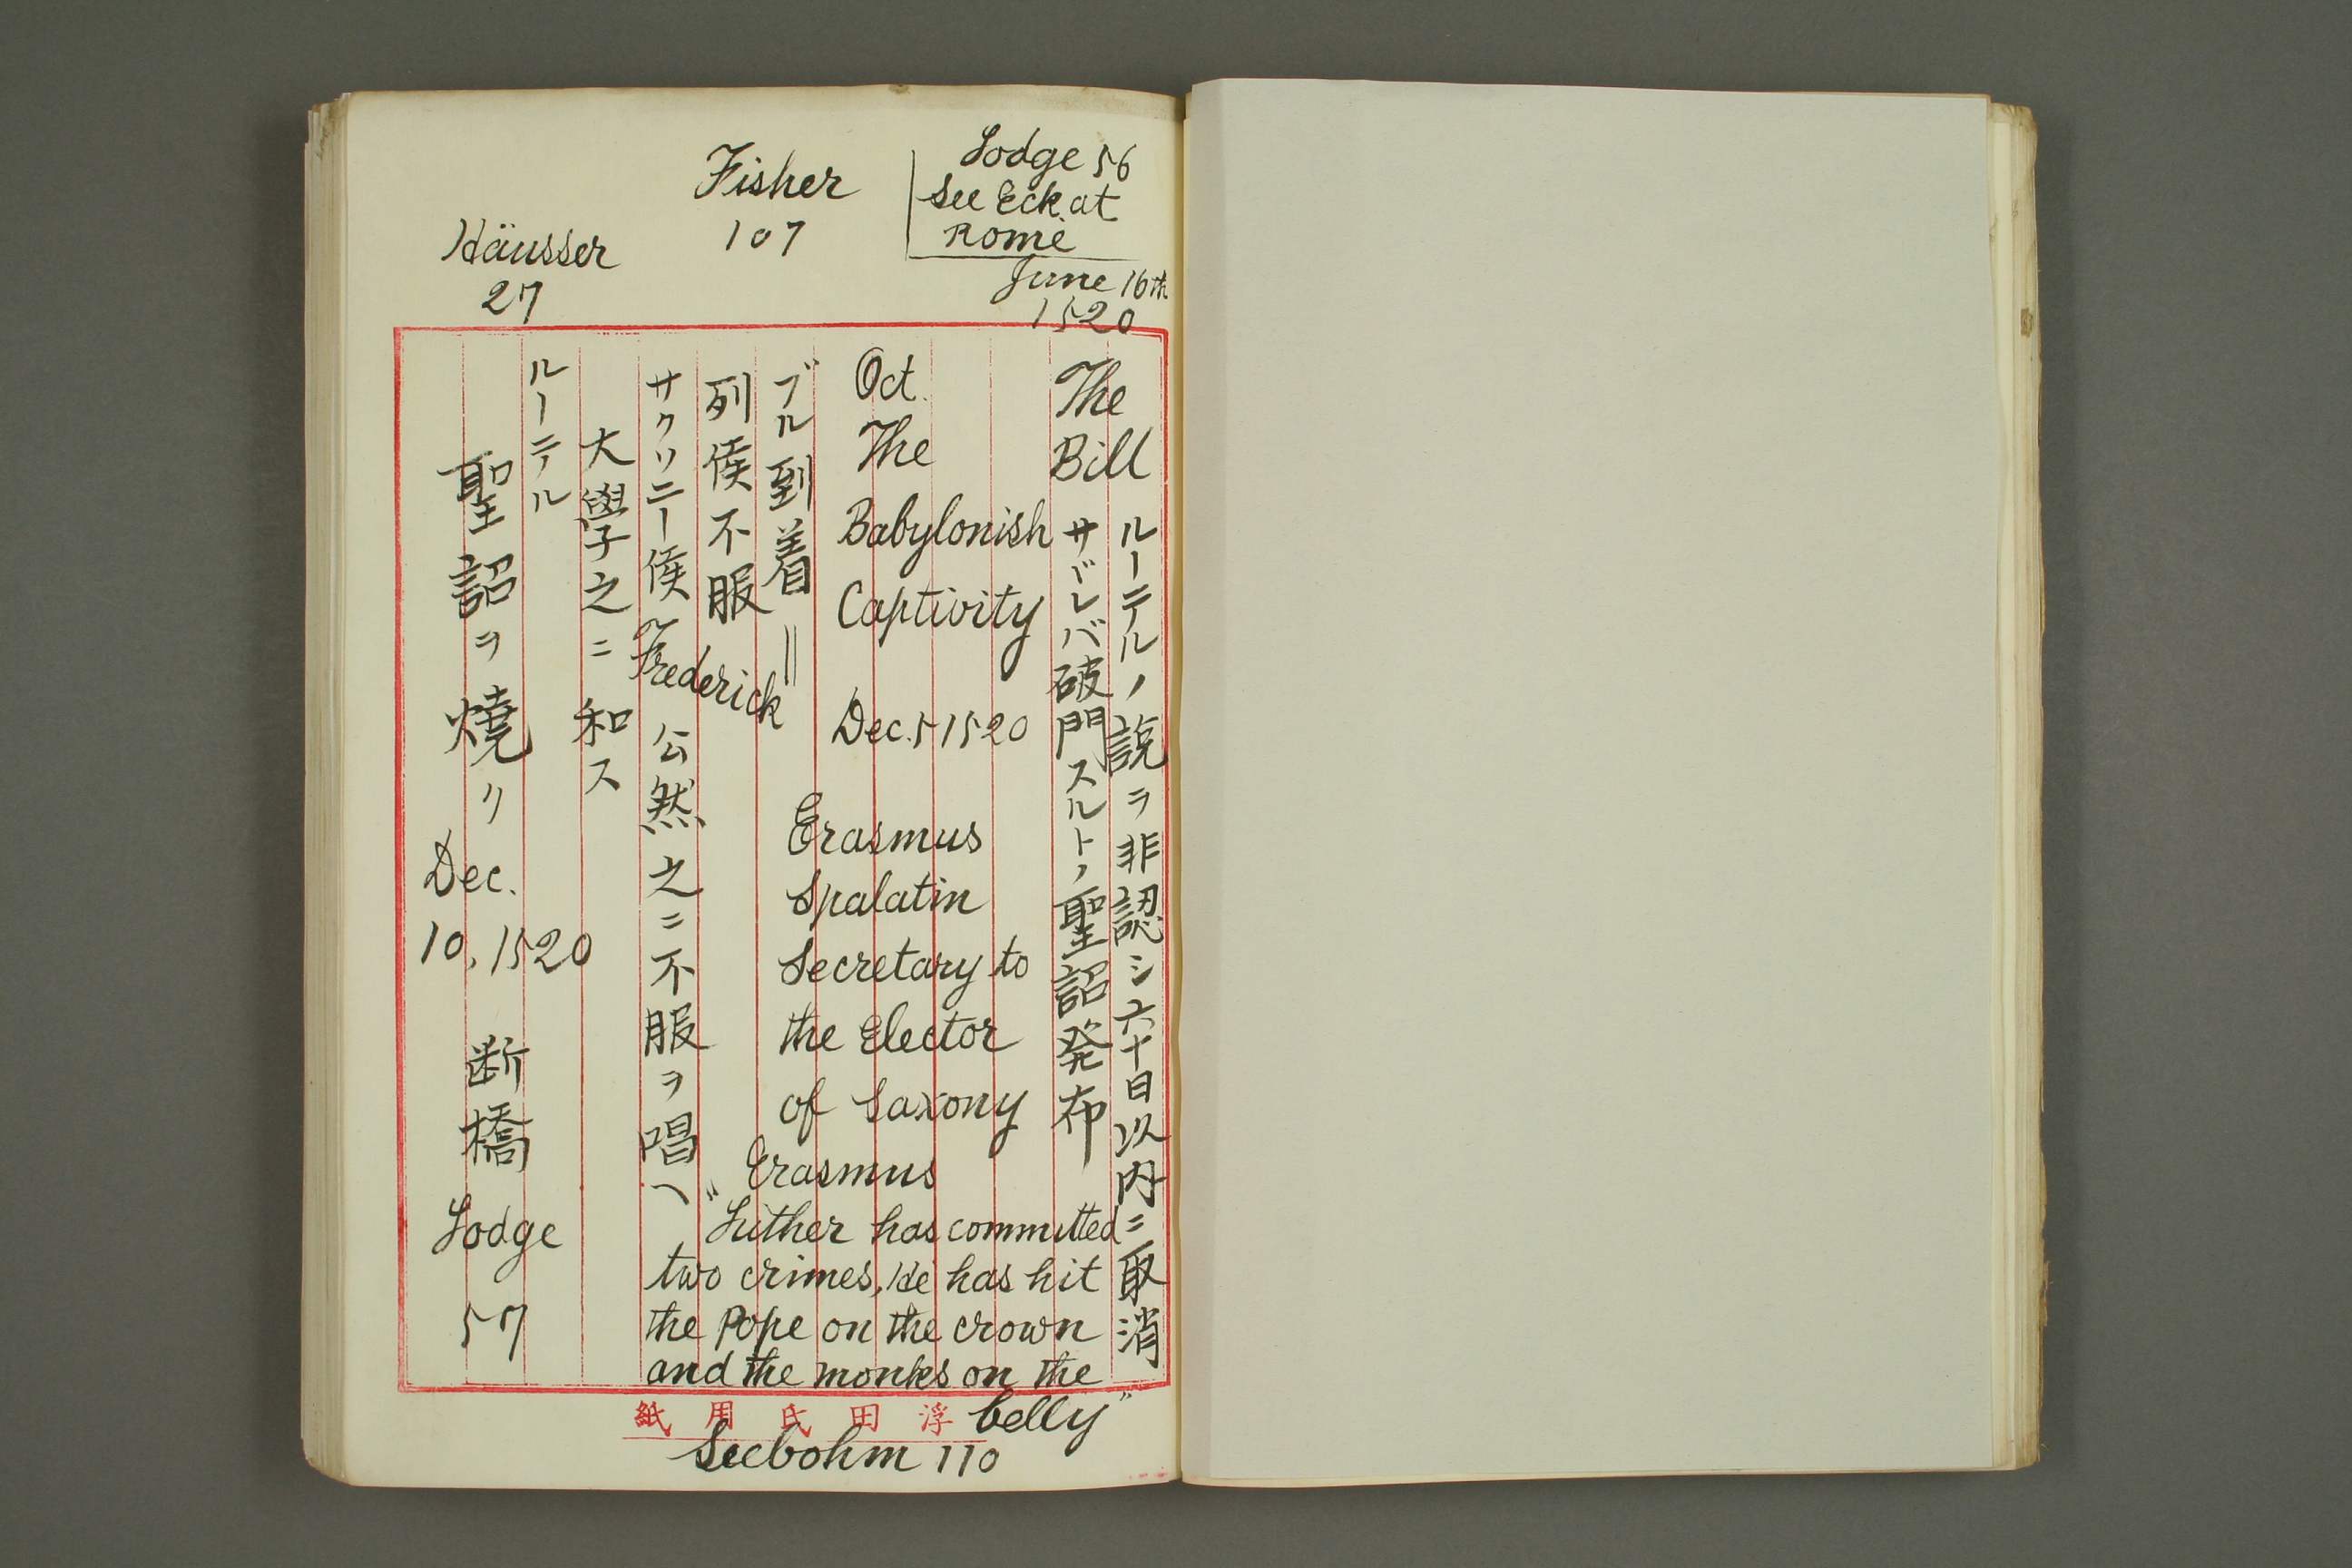 Lodge 56
See Eck at
Rome
June 16th
1520
Fisher
107
Häusser
27
The
Bill
ルーテルノ説ヲ非認シ六十日以内ニ取消
サヾレバ破門スルトノ聖詔発布
Oct.
The
Babylonish
Captivity
Dec. 5 1520
Erasmus
Spalatin
Secretary to
the Elector
of Saxony
Erasmus
"Luther has committed
two crimes, He has hit
the Pope on the crown
and the monks on the
belly"
Seebohm 110
ブル到着＝
列侯不服
サクソニー侯 Frederick 公然之ニ不服ヲ唱ヘ
大學之ニ和ス
ルーテル
聖詔ヲ燒ク
Dec.
10, 1520
断橋
Lodge
57
浮田氏用紙